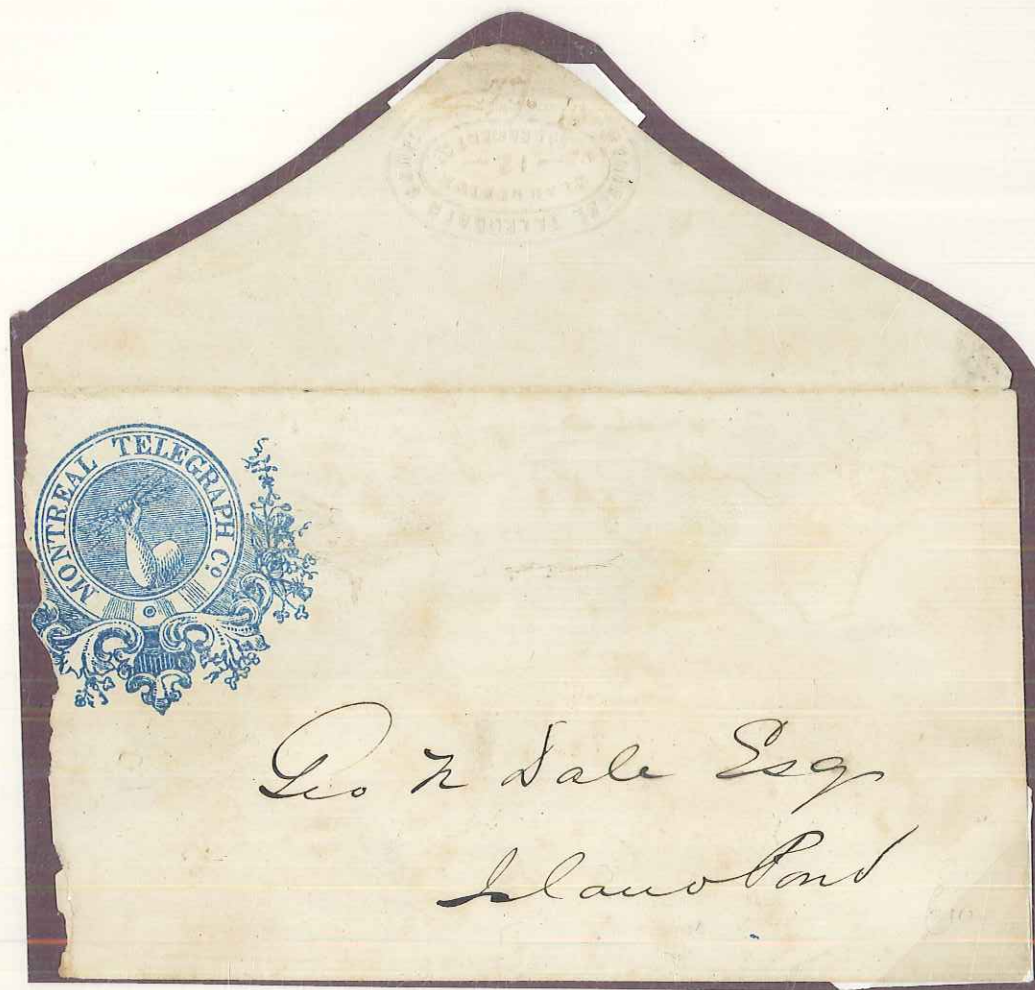 MONTREAL TELEGRAPH Co
Geo N Dale Esq
Island Pond